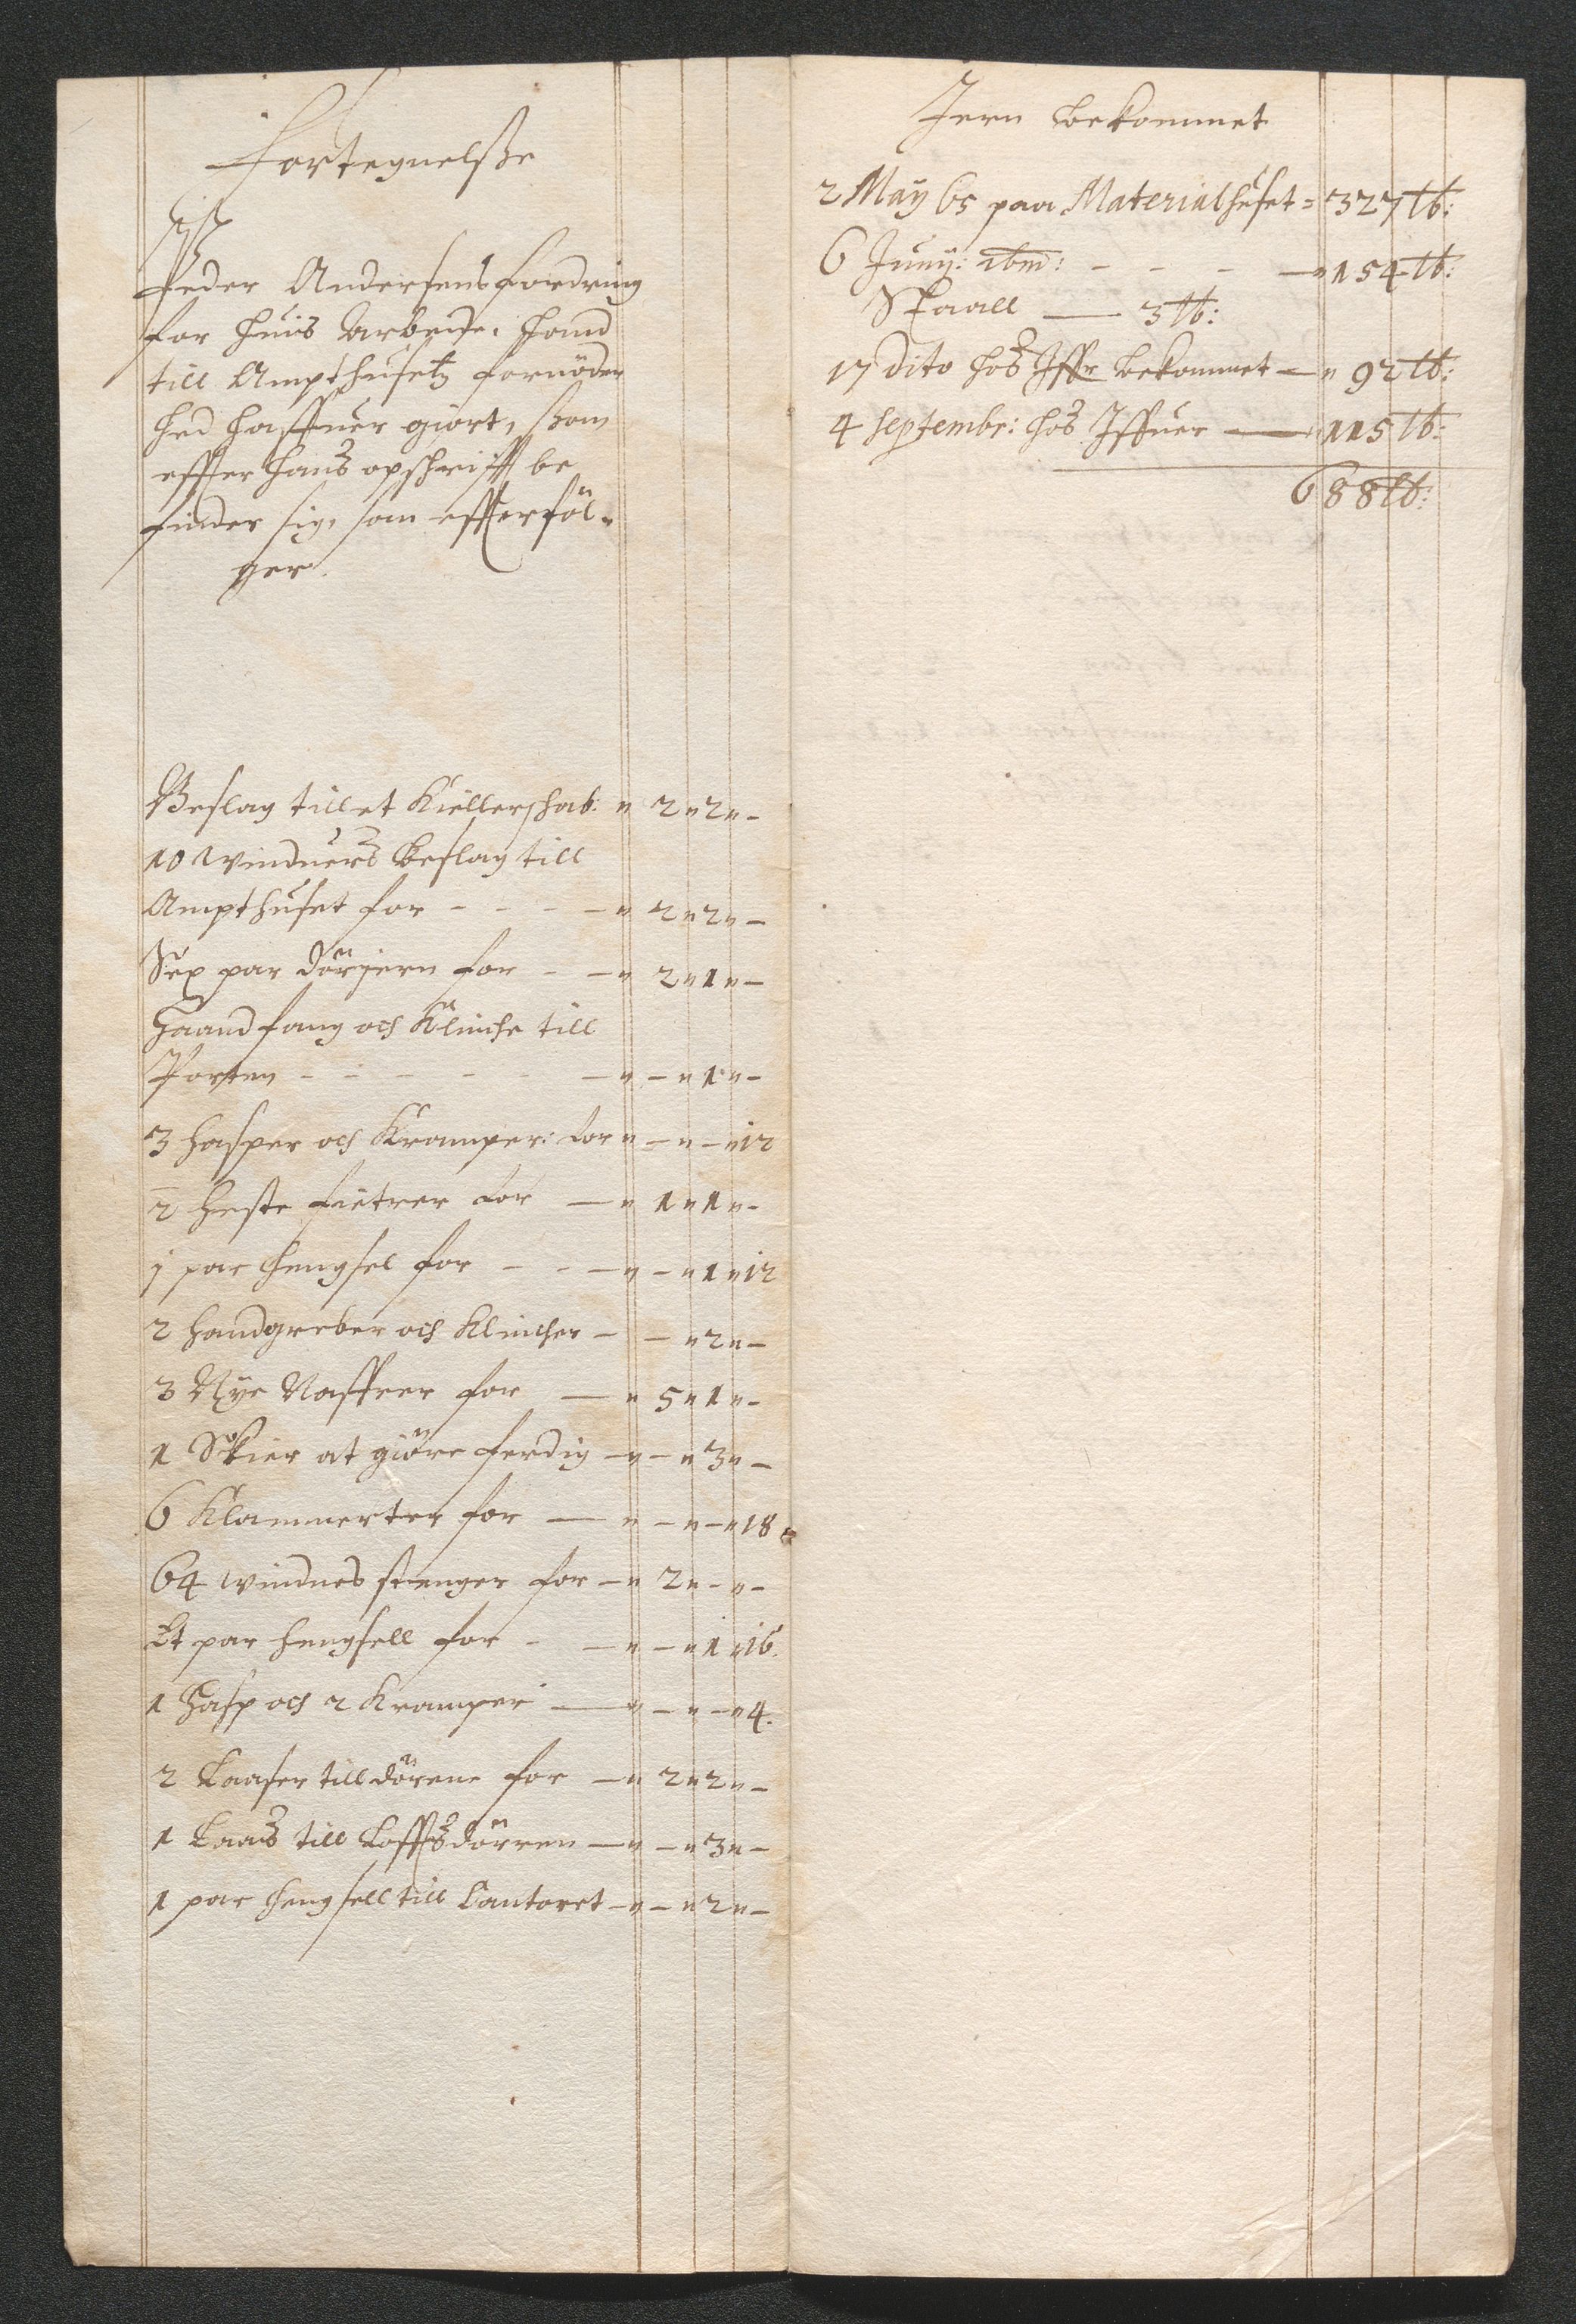 Fortegnelsse
paa
Peder Andersens fordring
for huis Arbeide, hand
till Ampthusetz fornöden
hed haffuer giort, som
effter hans opschrifft be
finder sig, som effterföl-
ger.
Beslag till et Kiellerschab: " 2 " 2 " -
10 Winduers Beslag till
Ampthuset for - - - - " 2 " 2 " -
Sex par dörjern for - - " 2 " 1 " -
Haandfang och Klincke till
Porten - - - - - - " - " 1 " -
3 hasper och Kramper: for " - " - " 12
2 heste fietrer for - " 1 " 1 " -
1 par hengsel for - - - " - " 1 " 12
2 handgreber och Klincher - - " 2 " -
3 Nye Naffrer for - " 5 " 1 " -
1 Skier at giöre ferdig - " - " 3 " -
6 Klammerter for - " - " - " 18
64 windues stenger for - " 2 " - " -
Et par hengsell for - - " - " 1 " 16.
1 Hasp och 2 Kramper - " - " - " 4.
2 Laaser till dörene for - " 2 " 2 " -
1 Laas till Lofftsdörren - " - " 3 " -
1 par hengsell till Cantoret - " - " 2 " -
Jern bekommet
2 May 65 paa Materialhuset = 327 lb:
6 Junij: ibm: - - - - " 154 lb:
Staall - 3 lb:
17 dito hos Iffr bekommet - " 92 lb:
4 Septembr: hos Iffuer - " 115 lb:
688 lb: